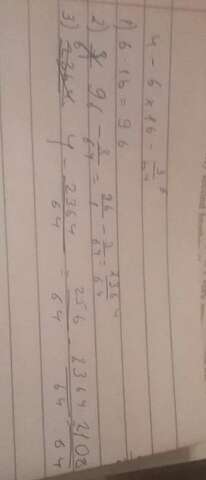 4 - 6 x 16 - 3/64
1) 6 · 16 = 96
2) 96 - 3/64 = 96/1 - 3/64 = 2364/64
3) 4 - 2364/64 = 256/64 - 2364/64 = 2108/64